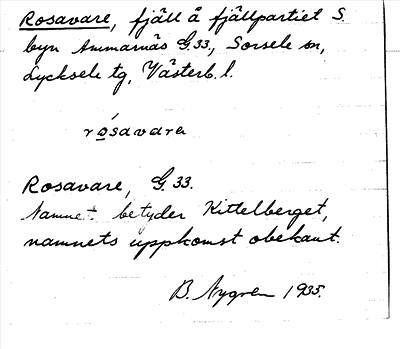 Rosavare, fjäll å fjällpartiet S.
byn Ammarnäs G.33., Sorsele sn,
Lycksele tg, Västerb. l.
rósavare
Rosavare, G 33.
Namnet betyder Kittelberget,
namnets uppkomst obekant.
B. Nygren 1935.